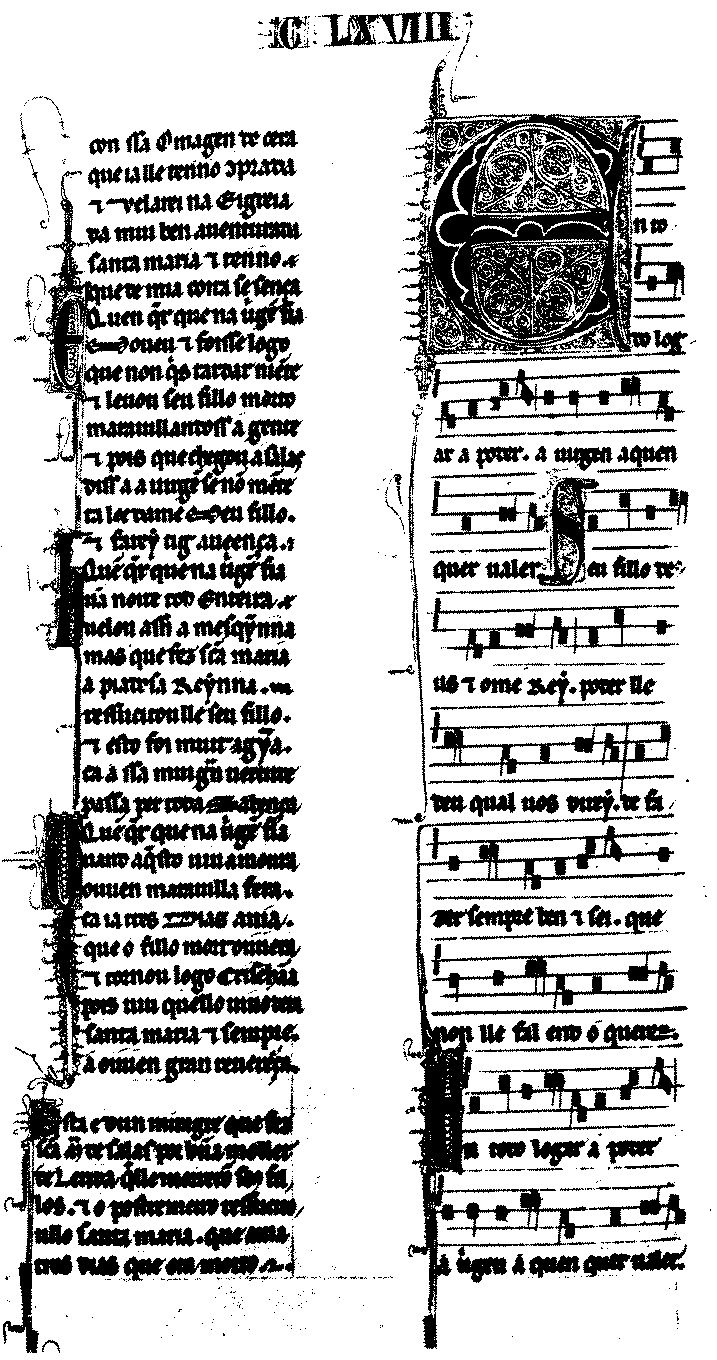 C LXVIII
con ssa Omagen de cera
que ia lle tenno
⁊ uelarei na Eigreia
da mui ben auenturada
santa maria ⁊ tenno.
que de mia coita se sença
Quen qr que na uirgē fia
E ouuu ⁊ foisse logo
que non qs tardar niēte
⁊ leuou seu fillo morto
marauillandoss a gente
⁊ pois que chegou a salas
diss a a uirgē se nō mēte
ta lee dame meu fillo.
⁊ farey tig aueença.
Que qr que na uirgē fia
ũa noite tod enteira
uelou assi a mesqynna
mas que fez sca maria
a piadosa Reynna.
ressucitoulle seu fillo.
⁊ esto foi muit agỹa.
ca a ssa mui gr̃a uertude
passa per toda
Que qr que na uirgē fia
uando aqsto uiu a moller
ouuen marauilla fera.
ca ia tres dias auia.
que o fillo mort ouuera
⁊ tornou logo
pois uiu aquello
santa maria ⁊ sempre.
a ouuen gran reuerença.
Esta e dun mingre que fez
sca M de salas por ũa moller
de Lerida q̃lle morrerō seo fi
los. ⁊ o postremeiro ressucito
ullo santa maria. que auia
tres dias que era morto
En to
do log
ar a poder. a uirgen a quen
quer ualer. Seu fillo de
us ⁊ ome Rey. poder lle
deu qual uos direy. de fa
zer sempre ben ⁊ sei. que
non lle fal end o querer.
En todo logar a poder
a uirgen a quen quer ualer.